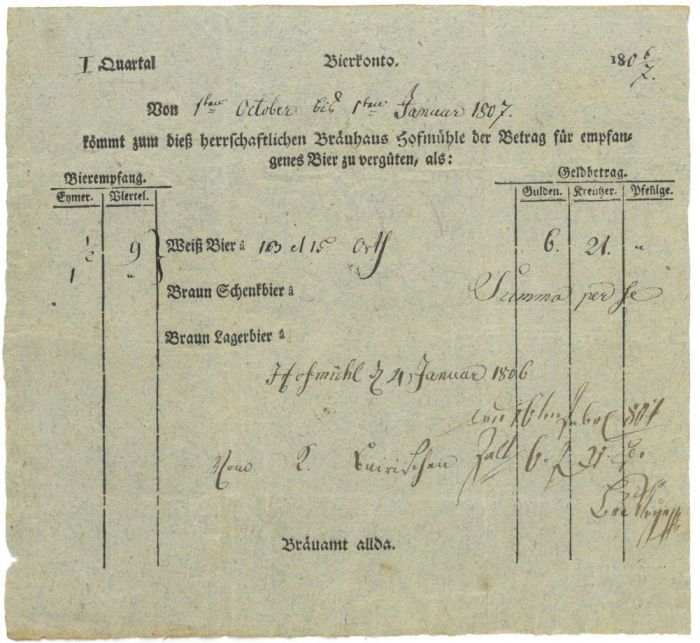 I Quartal Bierkonto. 180 6/7.
Von 1ten October bis 1ten Januar 1807.
kömmt zum dieß herrschaftlichen Bräuhaus Hofmühle der Betrag für empfan-
genes Bier zu vergüten, als:
Bierempfang. Geldbetrag.
Eymer. Viertel. Gulden. Kreutzer. Pfenige.
1/2 9 Weiß Bier â 163 et 15 6. 21. "
1 "
Braun Schenkbier â Summa per se
Braun Lagerbier â
Hofmühl d 4 Januar 1806
1807
Vom K. Bairischen
Zalt 6. f 21
Bräuamt allda.